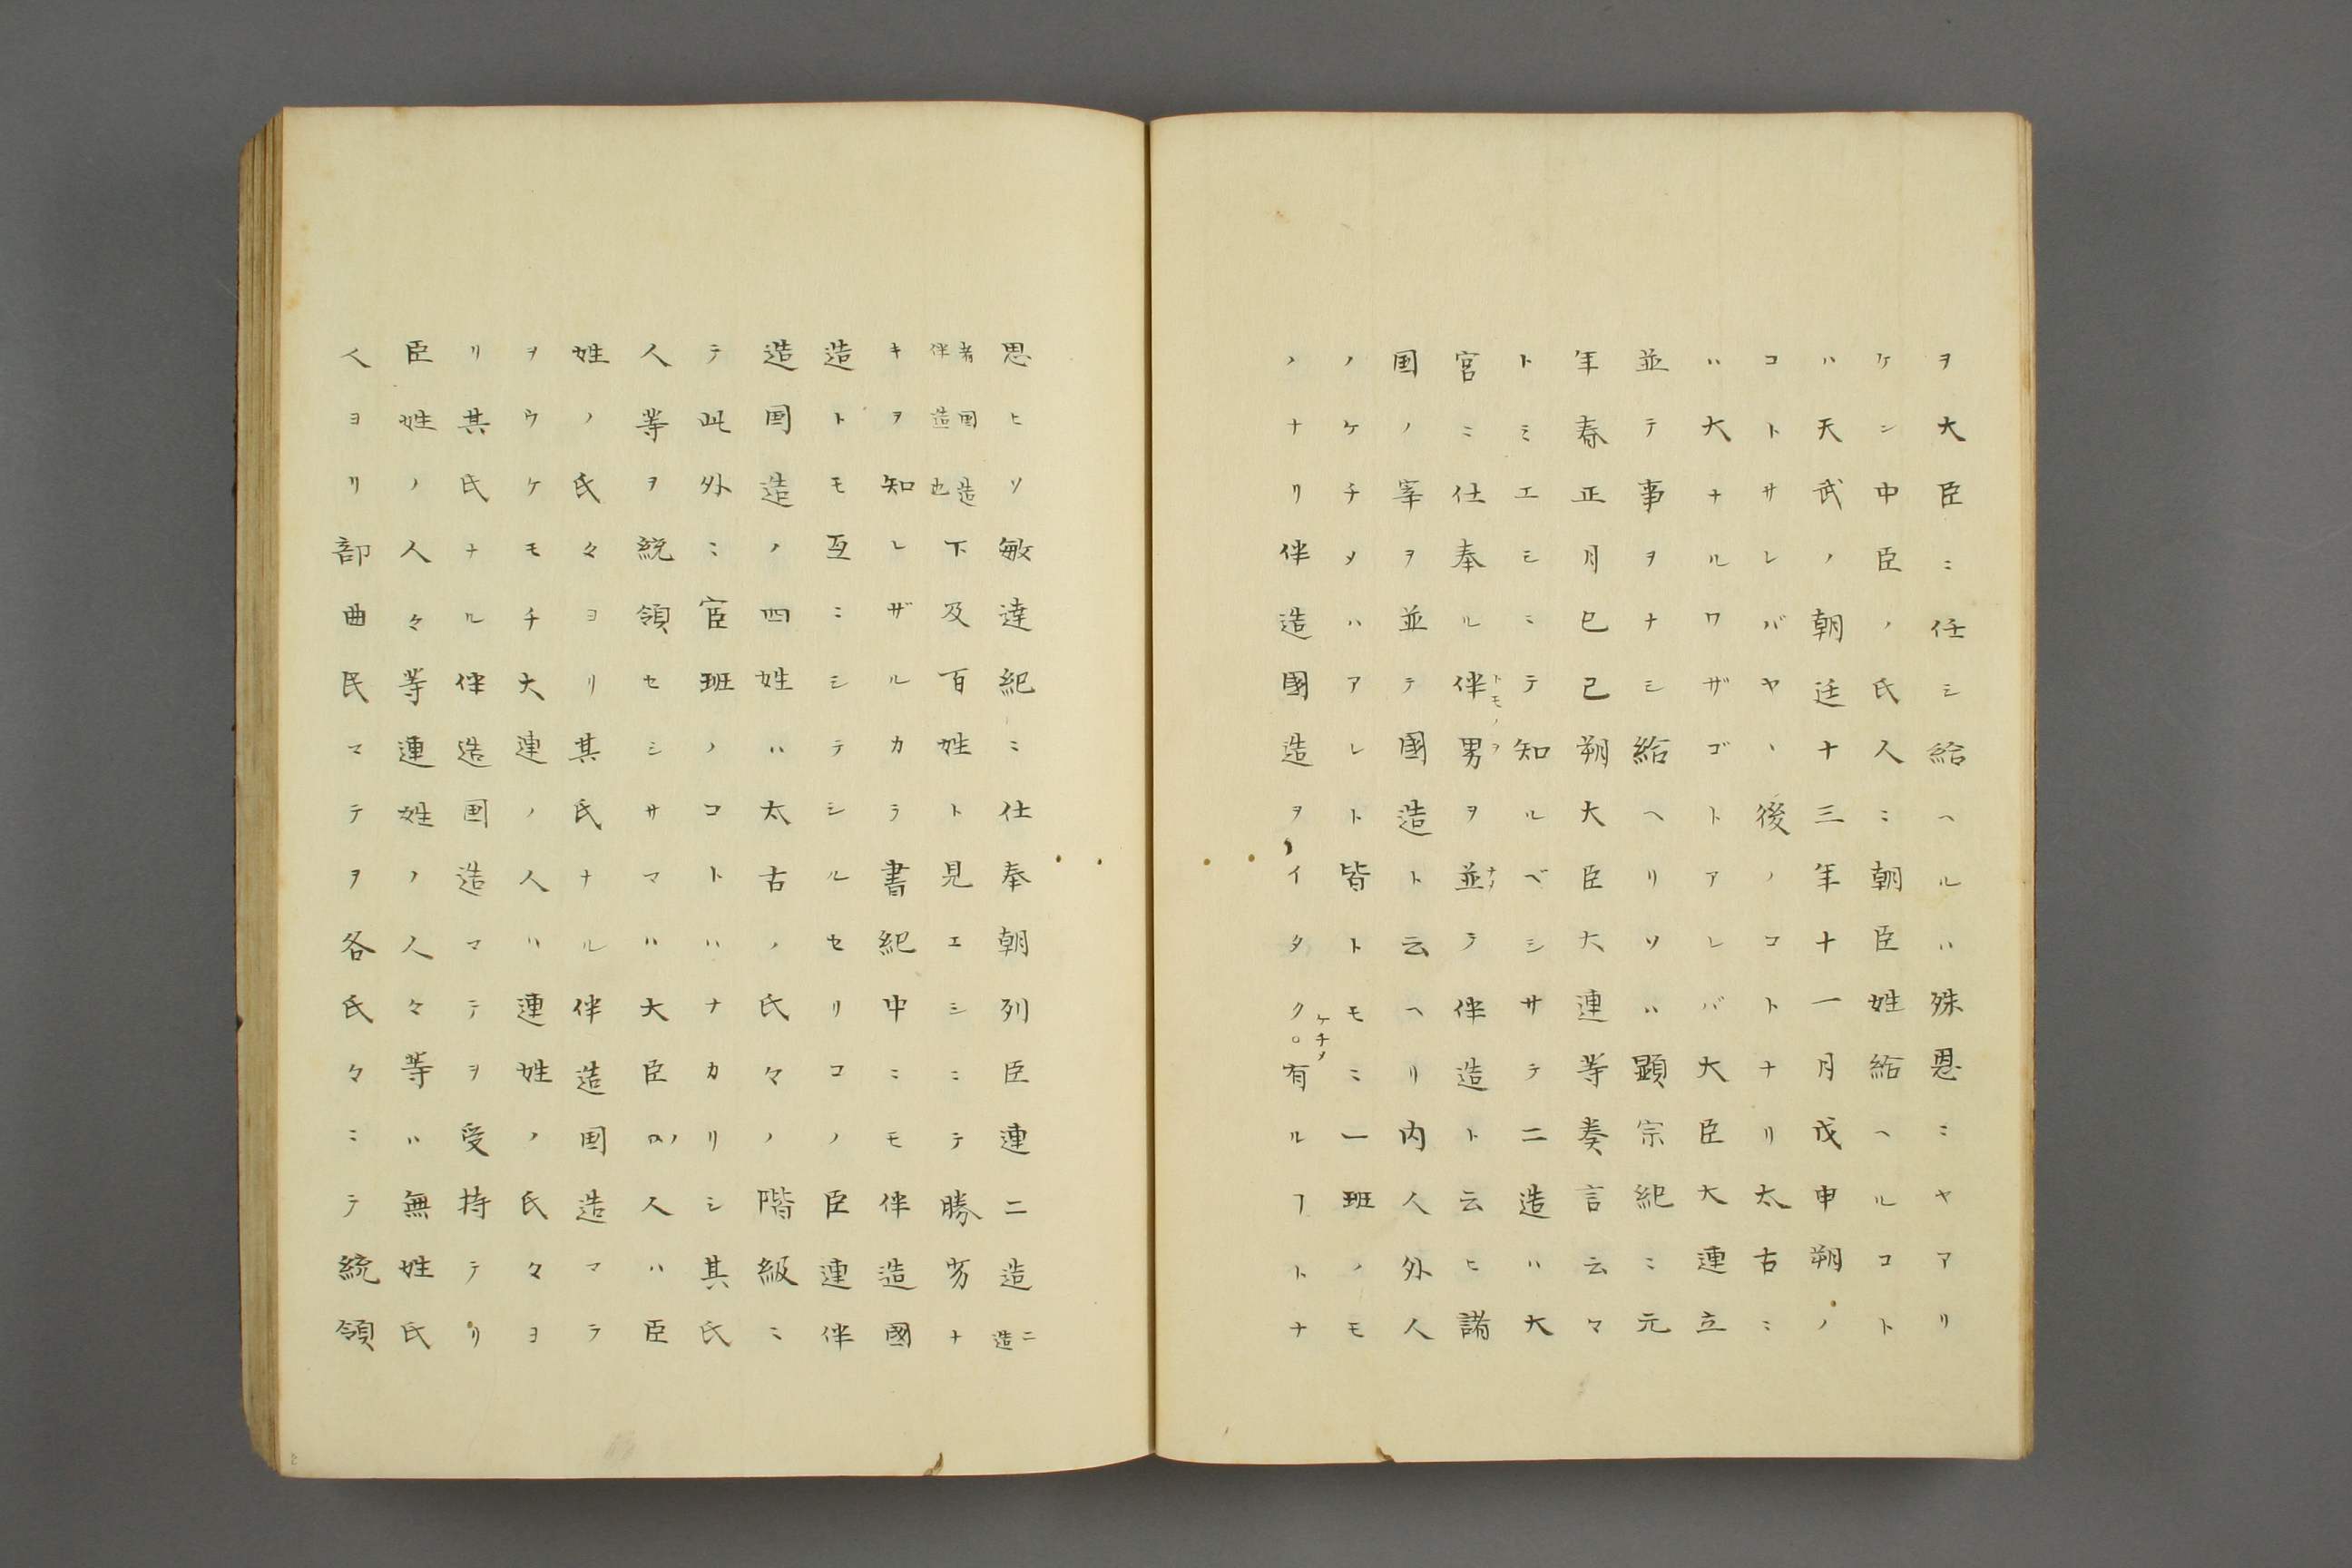 ヲ大臣ニ任シ給ヘルハ殊恩ニヤアリ
ケン中臣ノ氏人ニ朝臣姓給ヘルコト
ハ天武ノ朝廷十三年十一月戊申朔ノ
コトサレバヤヽ後ノコトナリ太古ニ
ハ大ナルワザゴトアレバ大臣大連立
並テ事ヲナシ給ヘリソハ顕宗紀ニ元
年春正月己巳朔大臣大連等奏言云々
トミエシニテ知ルベシサテ二造ハ大
宮ニ仕奉ル伴男ヲ並テ伴造ト云ヒ諸
国ノ宰ヲ並テ國造ト云ヘリ内人外人
ノケチメハアレト皆トモニ一班ノモ
ノナリ伴造國造ヲイタク。有ルヿトナ
思ヒソ敏達紀ニ仕奉朝列臣連二造 二造
者国造伴造也下及百姓ト見エシニテ勝劣ナ
キヲ知レザルカラ書紀中ニモ伴造國
造トモ互ニシテシルセリコノ臣連伴
造国造ノ四姓ハ太古ノ氏々ノ階級ニ
テ此外ニ宦班ノコトハナカリシ其氏
人等ヲ統領セシサマハ大臣ノ人ハ臣
姓ノ氏々ヨリ其氏ナル伴造国造マテ
ヲウケモチ大連ノ人ハ連姓ノ氏々ヨ
リ其氏ナル伴造国造マテヲ受持テリ
臣姓ノ人々等連姓ノ人々等ハ無姓氏
人ヨリ部曲民マテヲ各氏々ニテ統領